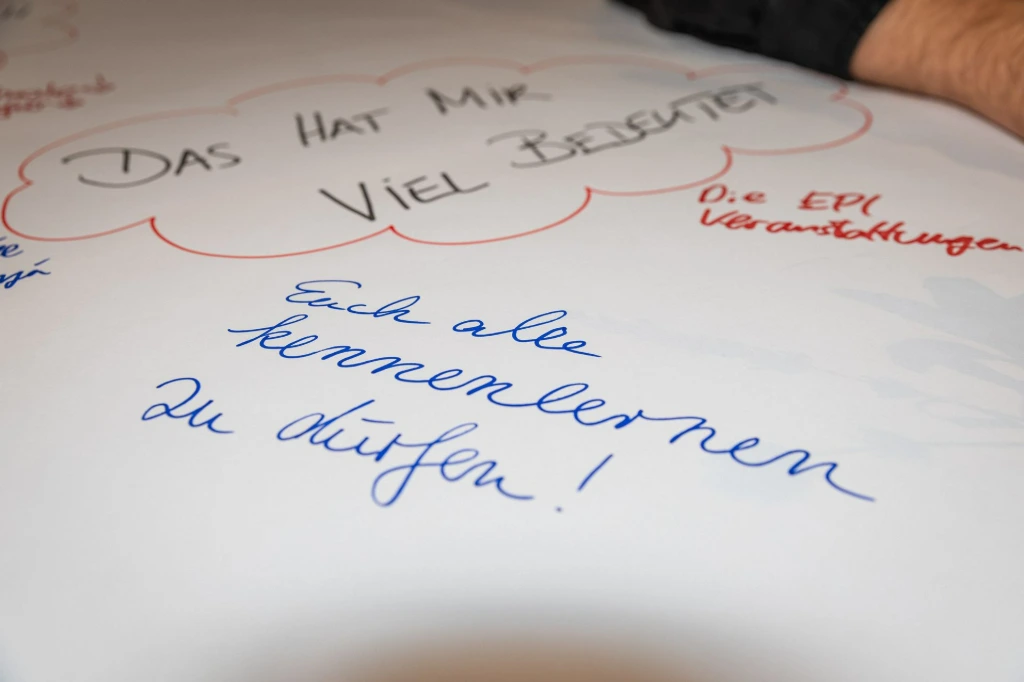 DAS HAT MIR
VIEL BEDEUTET
Die EPI
Veranstaltungen
Euch alle
kennenlernen
zu dürfen!